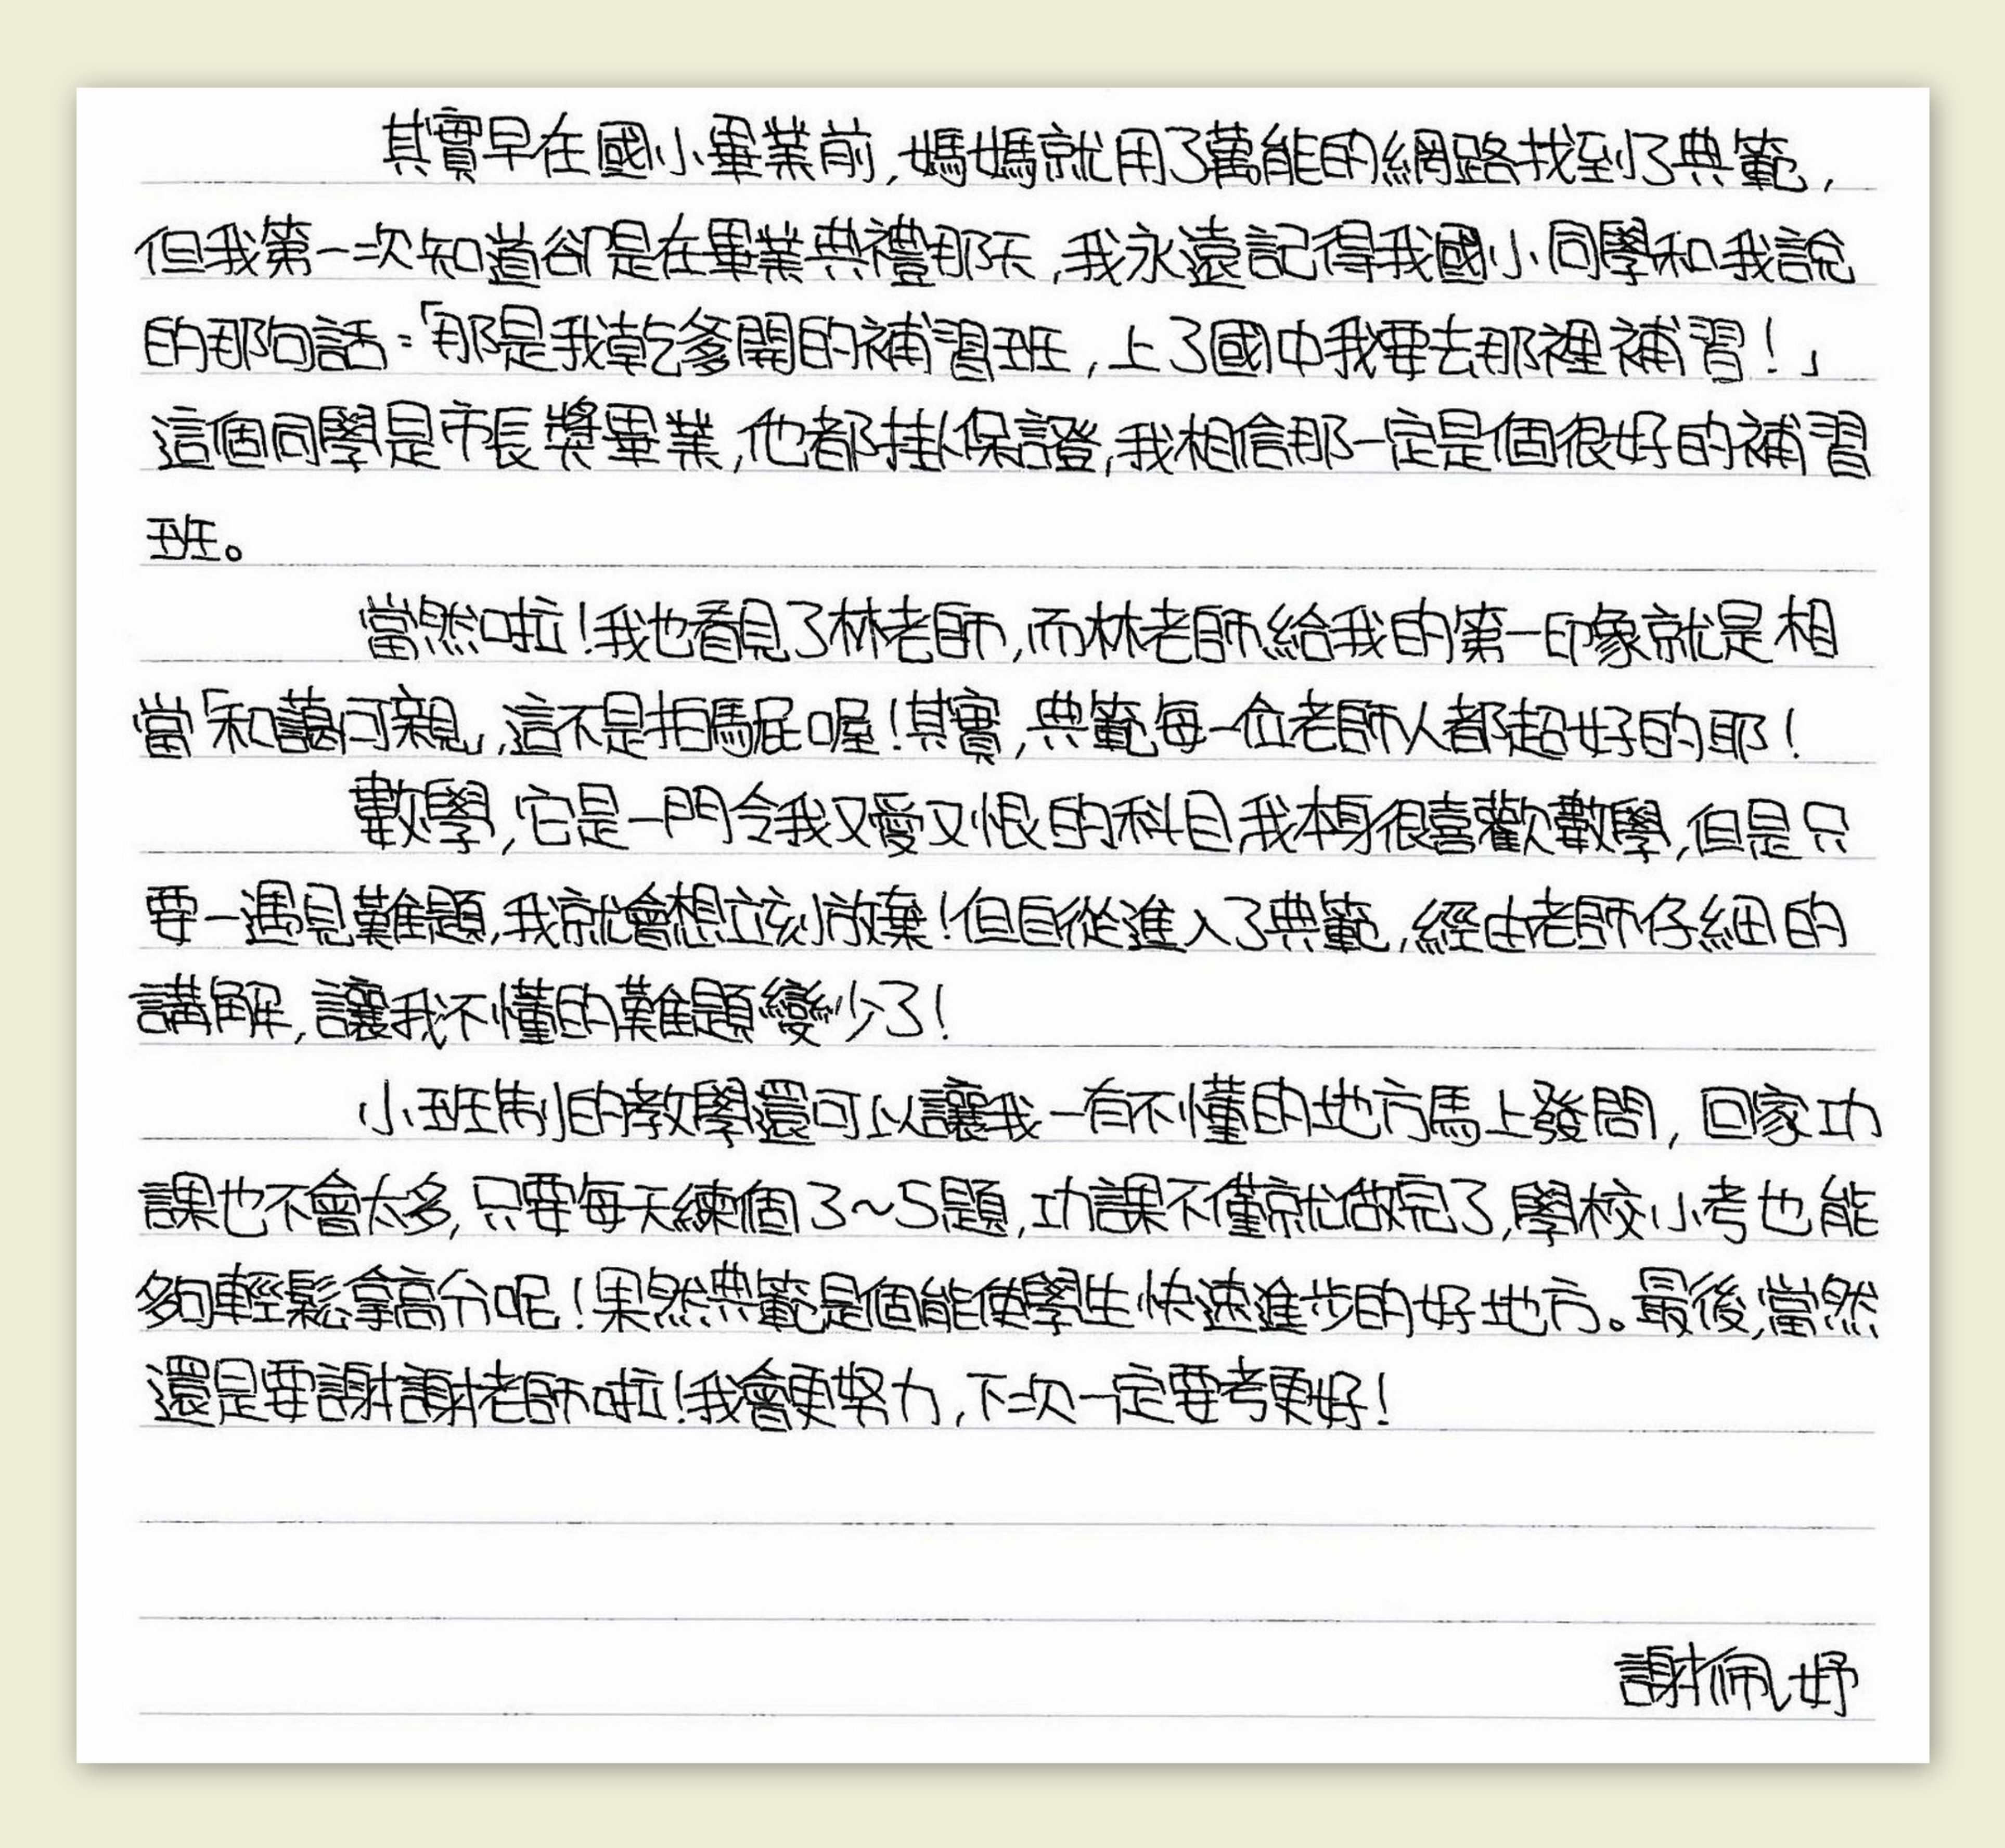 其實早在國小畢業前,媽媽就用了萬能的網路找到了典範,
但我第一次知道卻是在畢業典禮那天,我永遠記得我國小同學和我說
的那句話:「那是我乾爹開的補習班,上了國中我要去那裡補習!」
這個同學是市長獎畢業,他都掛保證,我相信那一定是個很好的補習
班。
當然啦!我也看見了林老師,而林老師給我的第一印象就是相
當「和藹可親」,這不是拍馬屁喔!其實,典範每一位老師人都超好的耶!
數學,它是一門令我又愛又恨的科目,我本身很喜歡數學,但是只
要一遇見難題,我就會想立刻放棄!但自從進入了典範,經由老師仔細的
講解,讓我不懂的難題變少了!
小班制的教學還可以讓我一有不懂的地方馬上發問,回家功
課也不會太多,只要每天練個3~5題,功課不僅就做完了,學校小考也能
夠輕鬆拿高分呢!果然典範是個能使學生快速進步的好地方。最後,當然
還是要謝謝老師啦!我會更努力,下次一定要考更好!
謝佩妤